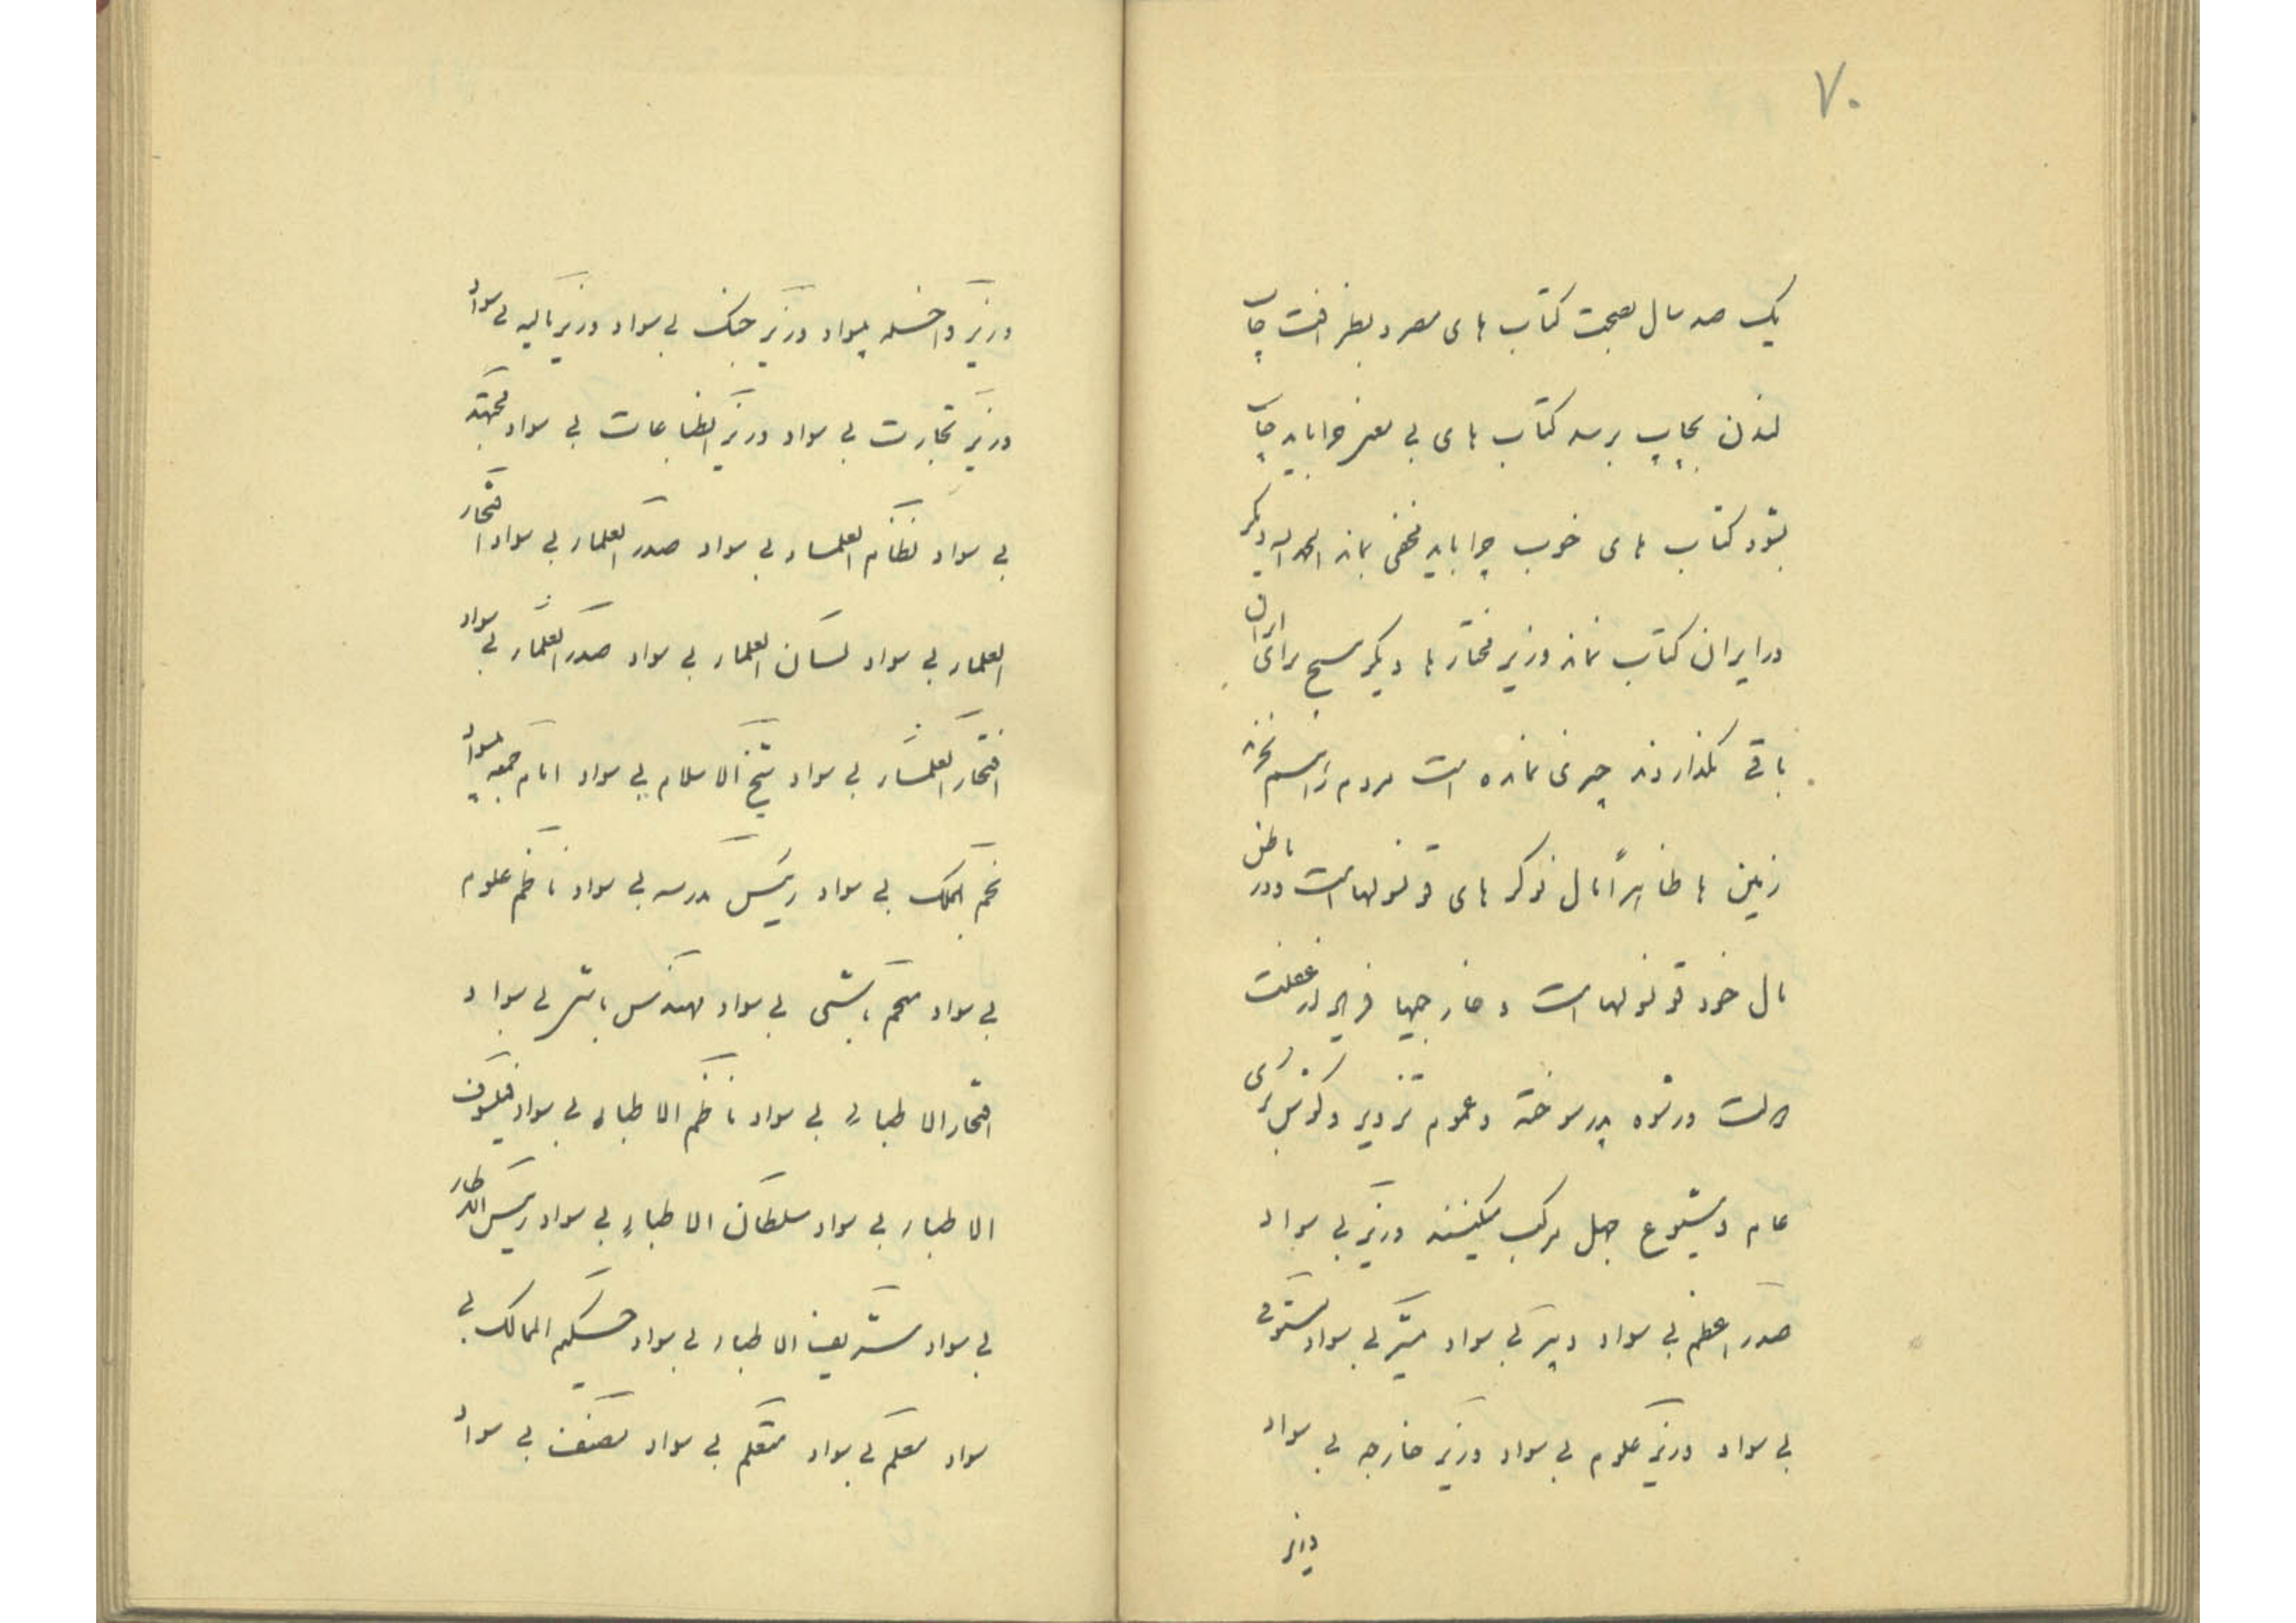 ۷۰
یک صد سال بصحت کتاب های مصر و بظرافت چاپ
لندن بچاپ برسد کتاب های بی معنی چرا باید چاپ
بشود کتاب های خوب چرا باید مخفی بماند الحمد لله دیگر
در ایران کتاب نماند وزیر مختار ها دیگر برای ایران
باقی نگذاردند چیزی نمانده است مردم را
زمین ها ظاهراً مال نوکر های قونسولهاست و در باطن
مال خود قونسولهاست و خارجیها غفلت
دولت و رشوه پدر سوخته و عموم تزویر و برای
عام و شیوع جهل مرکب میکنند وزیر بی سواد
صدر اعظم بی سواد دبیر بی سواد مشیر بی سواد مستوفی
بی سواد وزیر علوم بی سواد وزیر خارجه بی سواد
وزیر
وزیر داخله بیسواد وزیر جنک بی سواد وزیر مالیه بی سواد
وزیر تجارت بی سواد وزیر انطباعات بی سواد مجتهد
بی سواد نظام العلماء بی سواد صدر العلماء بی سواد افتخار
العلماء بی سواد لسان العلماء بی سواد صدر العلماء بی سواد
افتخار العلماء بی سواد شیخ الاسلام بی سواد امام جمعه بیسواد
نجم الملک بی سواد رئیس مدرسه بی سواد ناظم علوم
بی سواد منجم باشی بی سواد مهندس باشی بی سواد
افتخار الاطباء بی سواد ناظم الاطباء بی سواد فیلسوف
الاطباء بی سواد سلطان الاطباء بی سواد رئیس الاطباء
بی سواد شریف الاطباء بی سواد حکیم الممالک بی
سواد معلم بی سواد متعلم بی سواد مصنف بی سواد